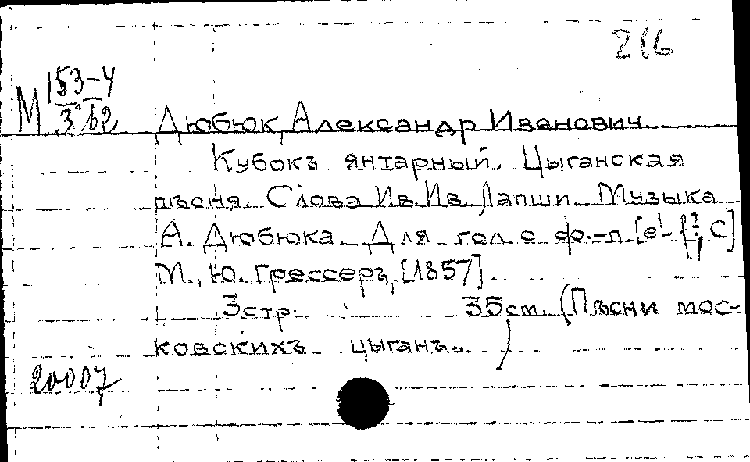 М 153-4
3° 62
Дюбюк, Александр Иванович
Кубокъ янтарный. Цыганская
пѣсня. Слова Ив. Ив. Лапши. Музыка
А. Дюбюка. Для гол. с ф.-п.
М., Ю. Грессеръ, [1857].
3 стр. 35 см. (Пѣсни мос-
ковскихъ цыганъ.)
20007